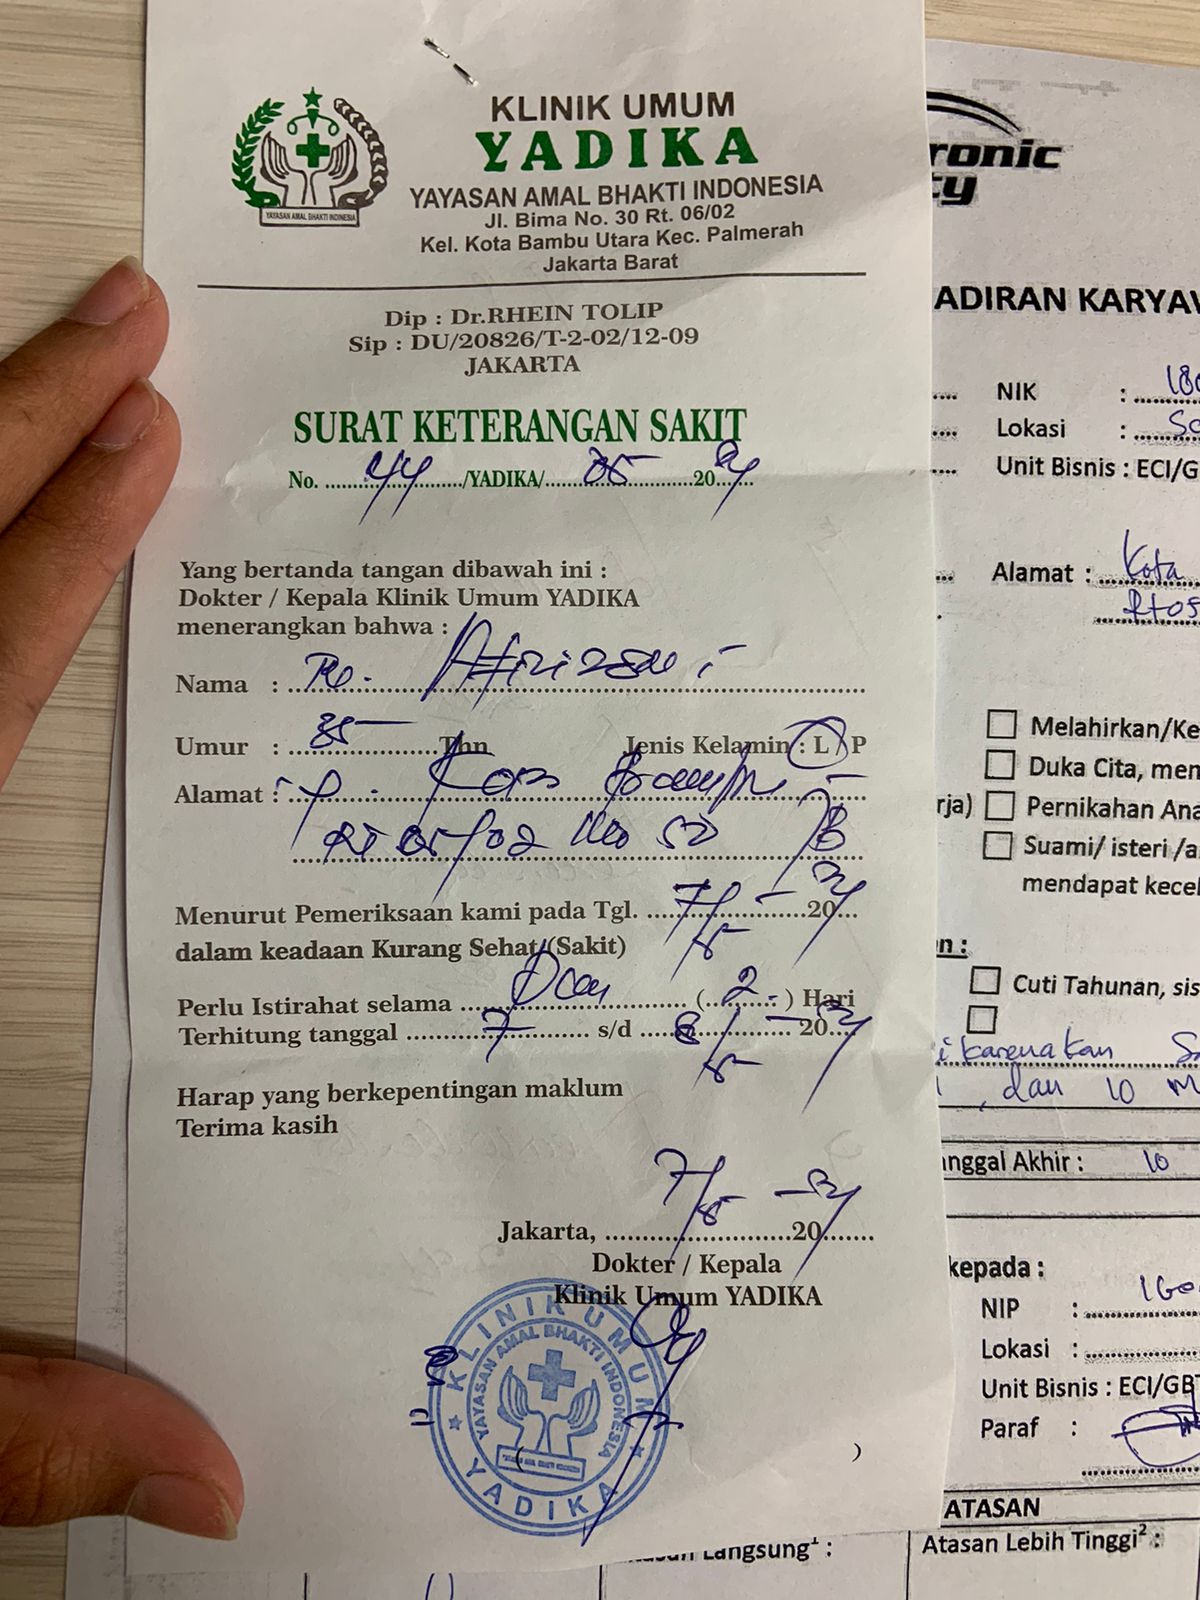 KLINIK UMUM
YADIKA
YAYASAN AMAL BHAKTI INDONESIA
Jl. Bima No. 30 Rt. 06/02
Kel. Kota Bambu Utara Kec. Palmerah
Jakarta Barat
YAYASAN AMAL BHAKTI INDONESIA
Dip : Dr.RHEIN TOLIP
Sip : DU/20826/T-2-02/12-09
JAKARTA
SURAT KETERANGAN SAKIT
No. .......... /YADIKA/ 05 20
Yang bertanda tangan dibawah ini :
Dokter / Kepala Klinik Umum YADIKA
menerangkan bahwa :
Nama :
Umur : 35 Thn Jenis Kelamin : L / P
Alamat :
Menurut Pemeriksaan kami pada Tgl. 7/5 - 20
dalam keadaan Kurang Sehat (Sakit)
Perlu Istirahat selama Dua ( 2 ) Hari
Terhitung tanggal 7 s/d 8/5 - 20
Harap yang berkepentingan maklum
Terima kasih
Jakarta, 7/5 - 20
Dokter / Kepala
Klinik Umum YADIKA
KLINIK UMUM
YAYASAN AMAL BHAKTI INDONESIA
YADIKA
ronic
ty
ADIRAN KARYAW
NIK :
Lokasi :
Unit Bisnis : ECI/G
Alamat : Kota
Rt05
Melahirkan/Ke
Duka Cita, men
rja) Pernikahan Ana
Suami/ isteri /a
mendapat kece
n :
Cuti Tahunan, sis
ikarenakan
, dan 10 M
nggal Akhir : 10
kepada :
NIP :
Lokasi :
Unit Bisnis : ECI/GBT
Paraf :
ATASAN
Langsung¹ :
Atasan Lebih Tinggi² :